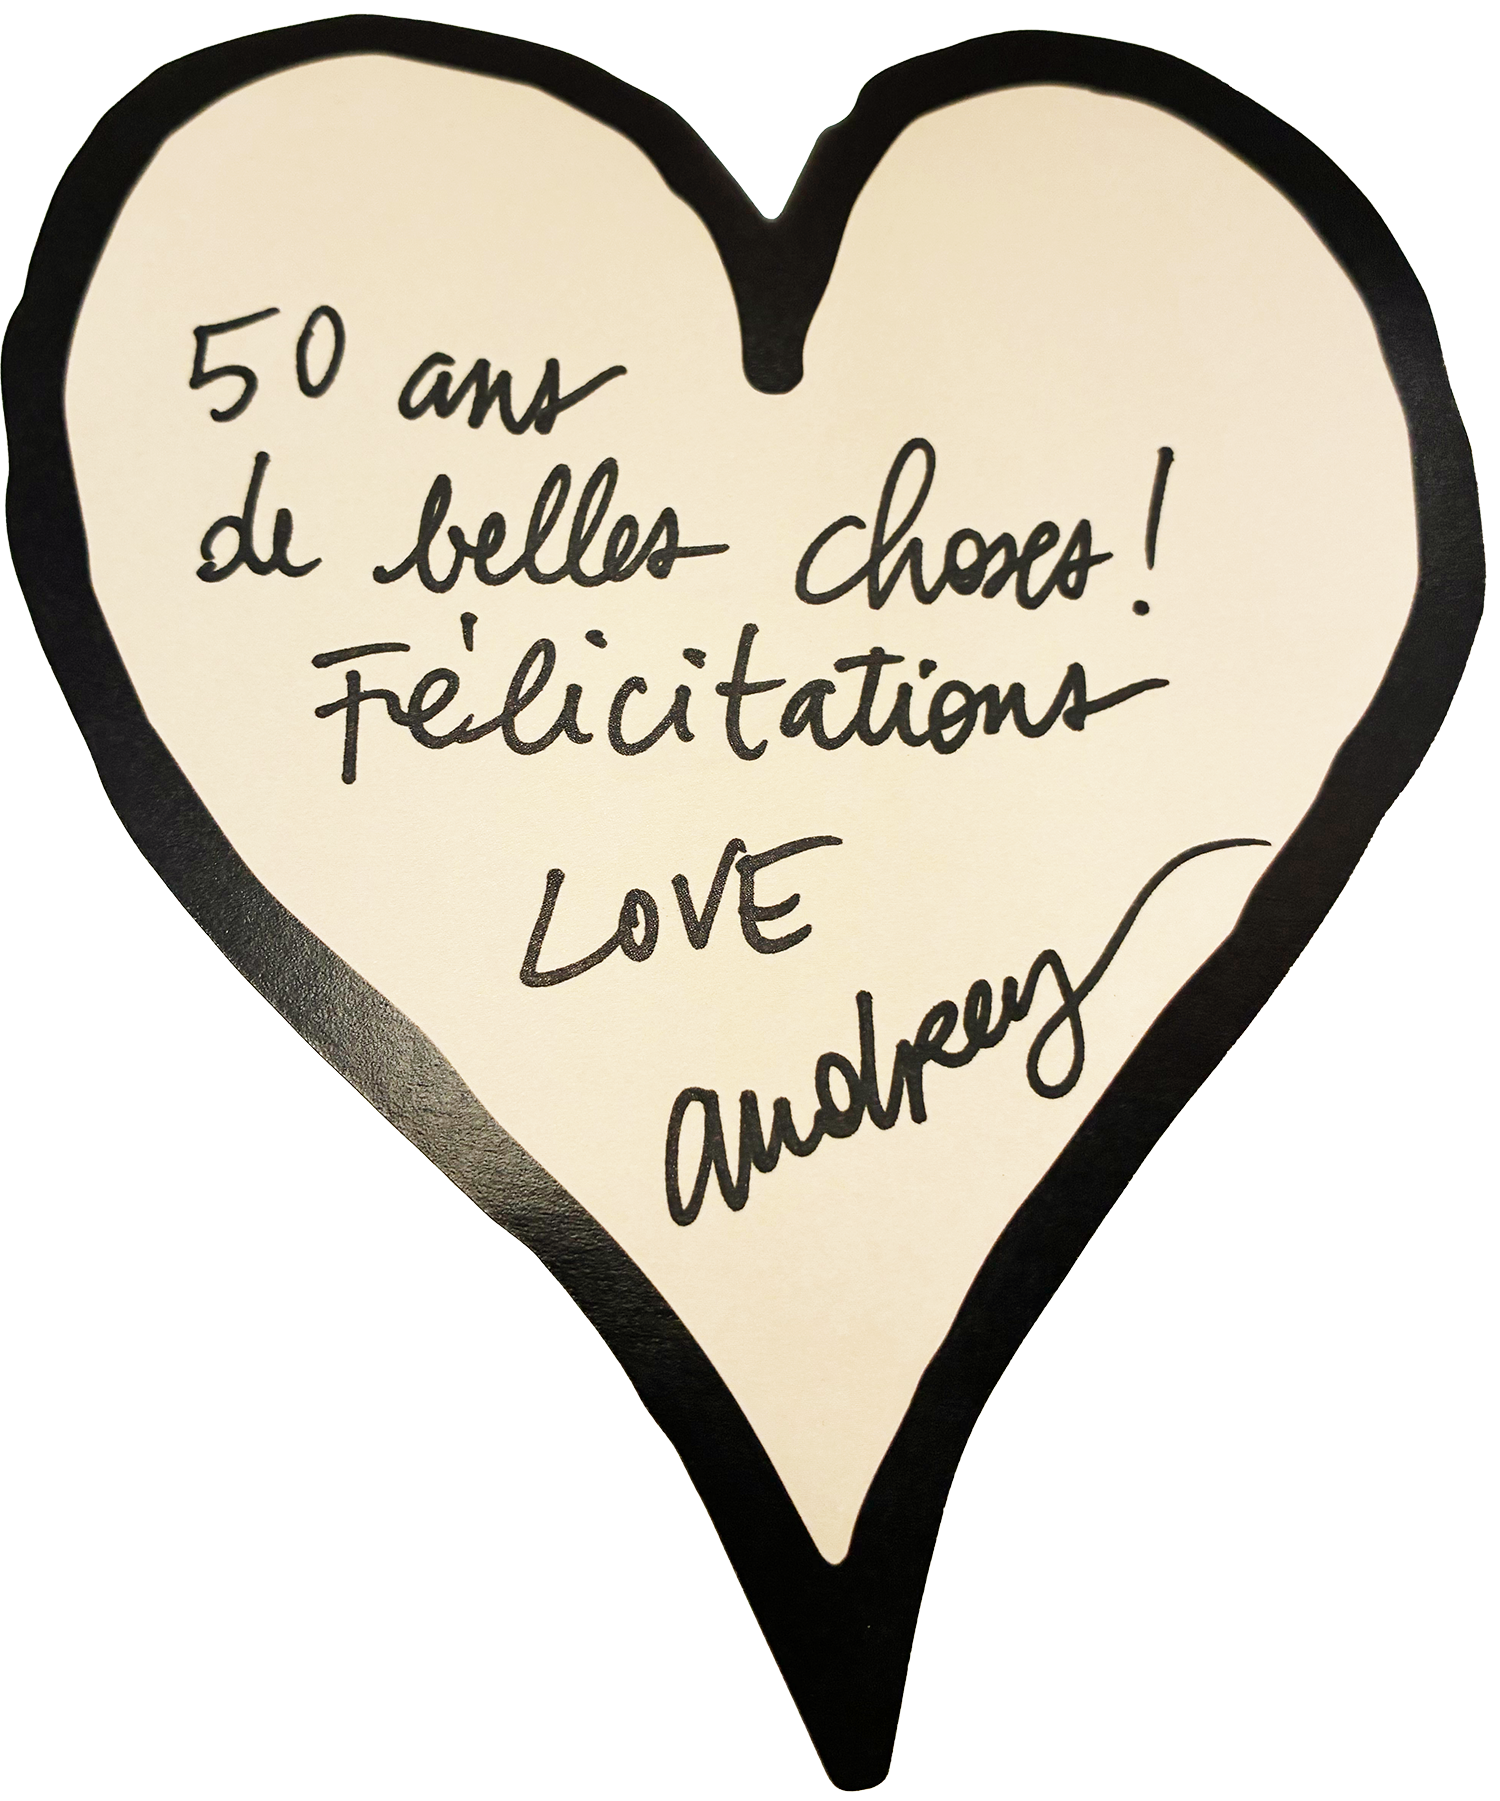 50 ans
de belles choses!
Félicitations
LOVE
andreey